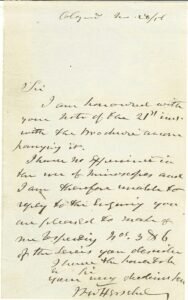 Sir
I am honoured with
your note of the 21st inst.
with the brochure accom
panying it.
I have no experience in
the use of microscopes and
I am therefore unable to
reply to the enquiry you
are pleased to make of
me respecting Nos. 5 & 6
of the series you
I have the honor to be
Sir
your very obedient
Herschel